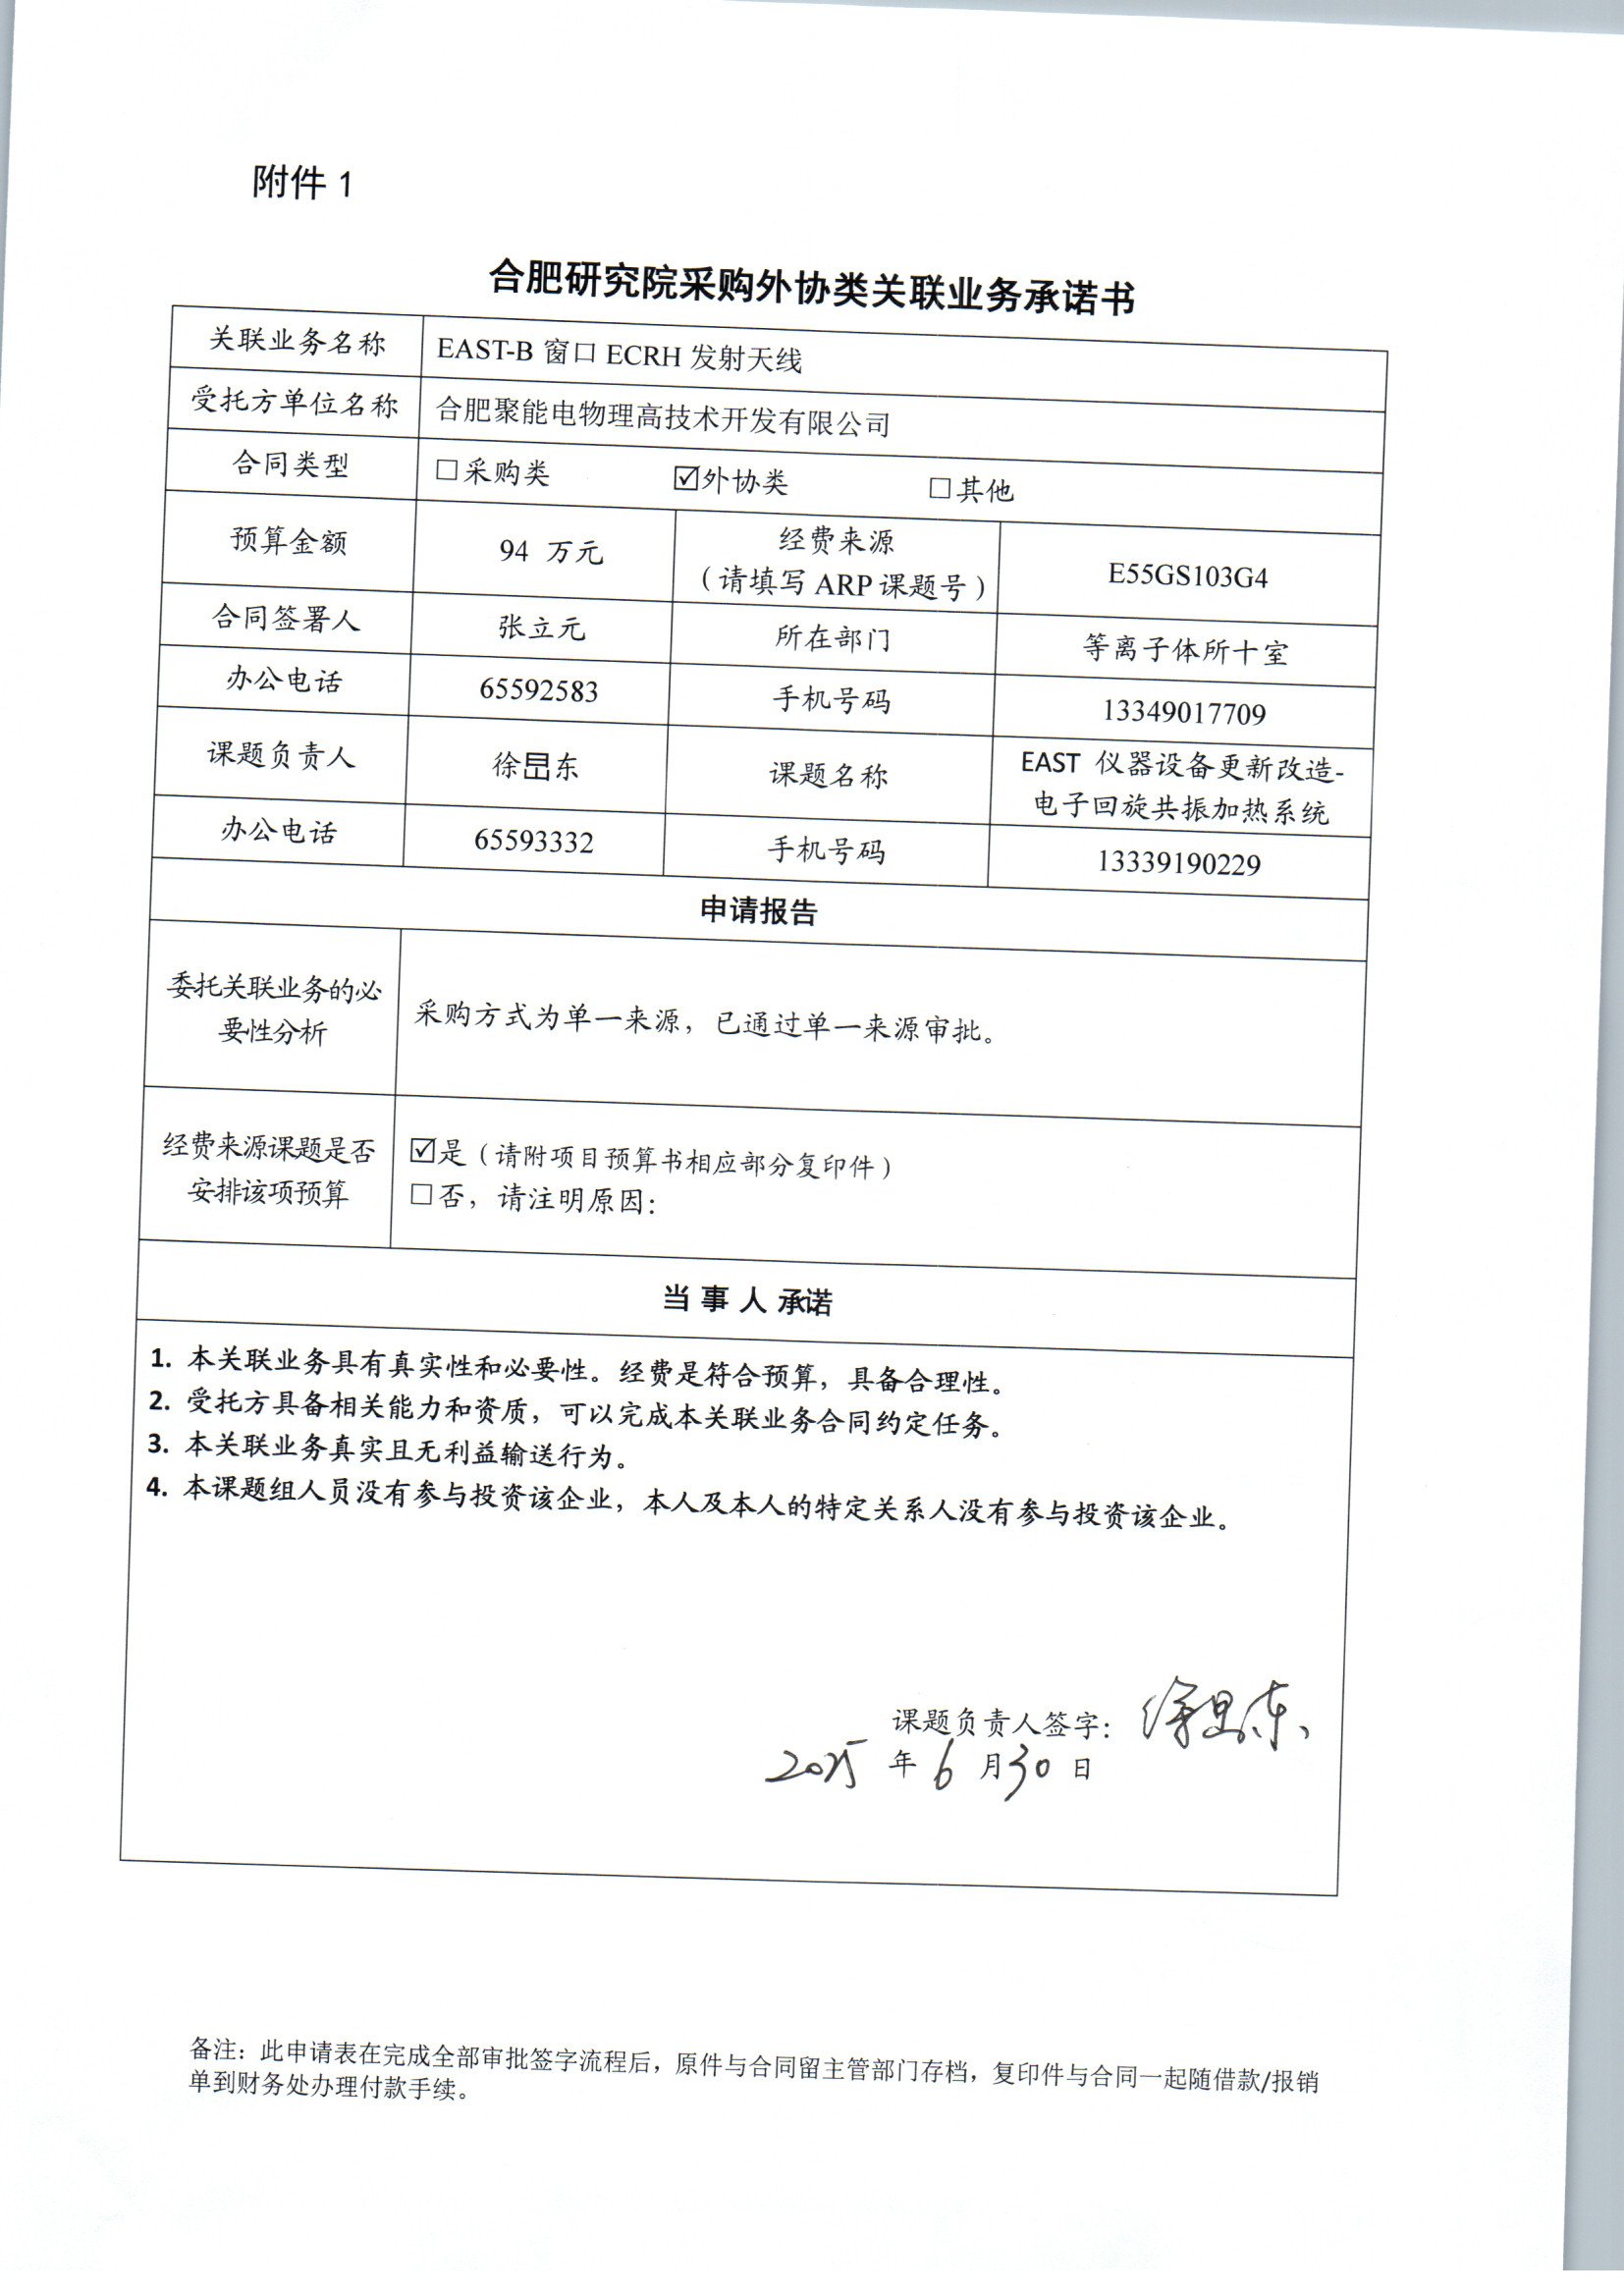 附件 1
合肥研究院采购外协类关联业务承诺书
关联业务名称 EAST-B 窗口 ECRH 发射天线
受托方单位名称 合肥聚能电物理高技术开发有限公司
合同类型 □采购类 ☑外协类 □其他
预算金额 94 万元 经费来源
（请填写 ARP 课题号） E55GS103G4
合同签署人 张立元 所在部门 等离子体所十室
办公电话 65592583 手机号码 13349017709
课题负责人 徐旵东 课题名称 EAST 仪器设备更新改造-
电子回旋共振加热系统
办公电话 65593332 手机号码 13339190229
申请报告
委托关联业务的必
要性分析
采购方式为单一来源，已通过单一来源审批。
经费来源课题是否
安排该项预算
☑是（请附项目预算书相应部分复印件）
□否，请注明原因：
当 事 人 承诺
1. 本关联业务具有真实性和必要性。经费是符合预算，具备合理性。
2. 受托方具备相关能力和资质，可以完成本关联业务合同约定任务。
3. 本关联业务真实且无利益输送行为。
4. 本课题组人员没有参与投资该企业，本人及本人的特定关系人没有参与投资该企业。
课题负责人签字：徐旵东
2025 年 6 月 30 日
备注：此申请表在完成全部审批签字流程后，原件与合同留主管部门存档，复印件与合同一起随借款/报销
单到财务处办理付款手续。